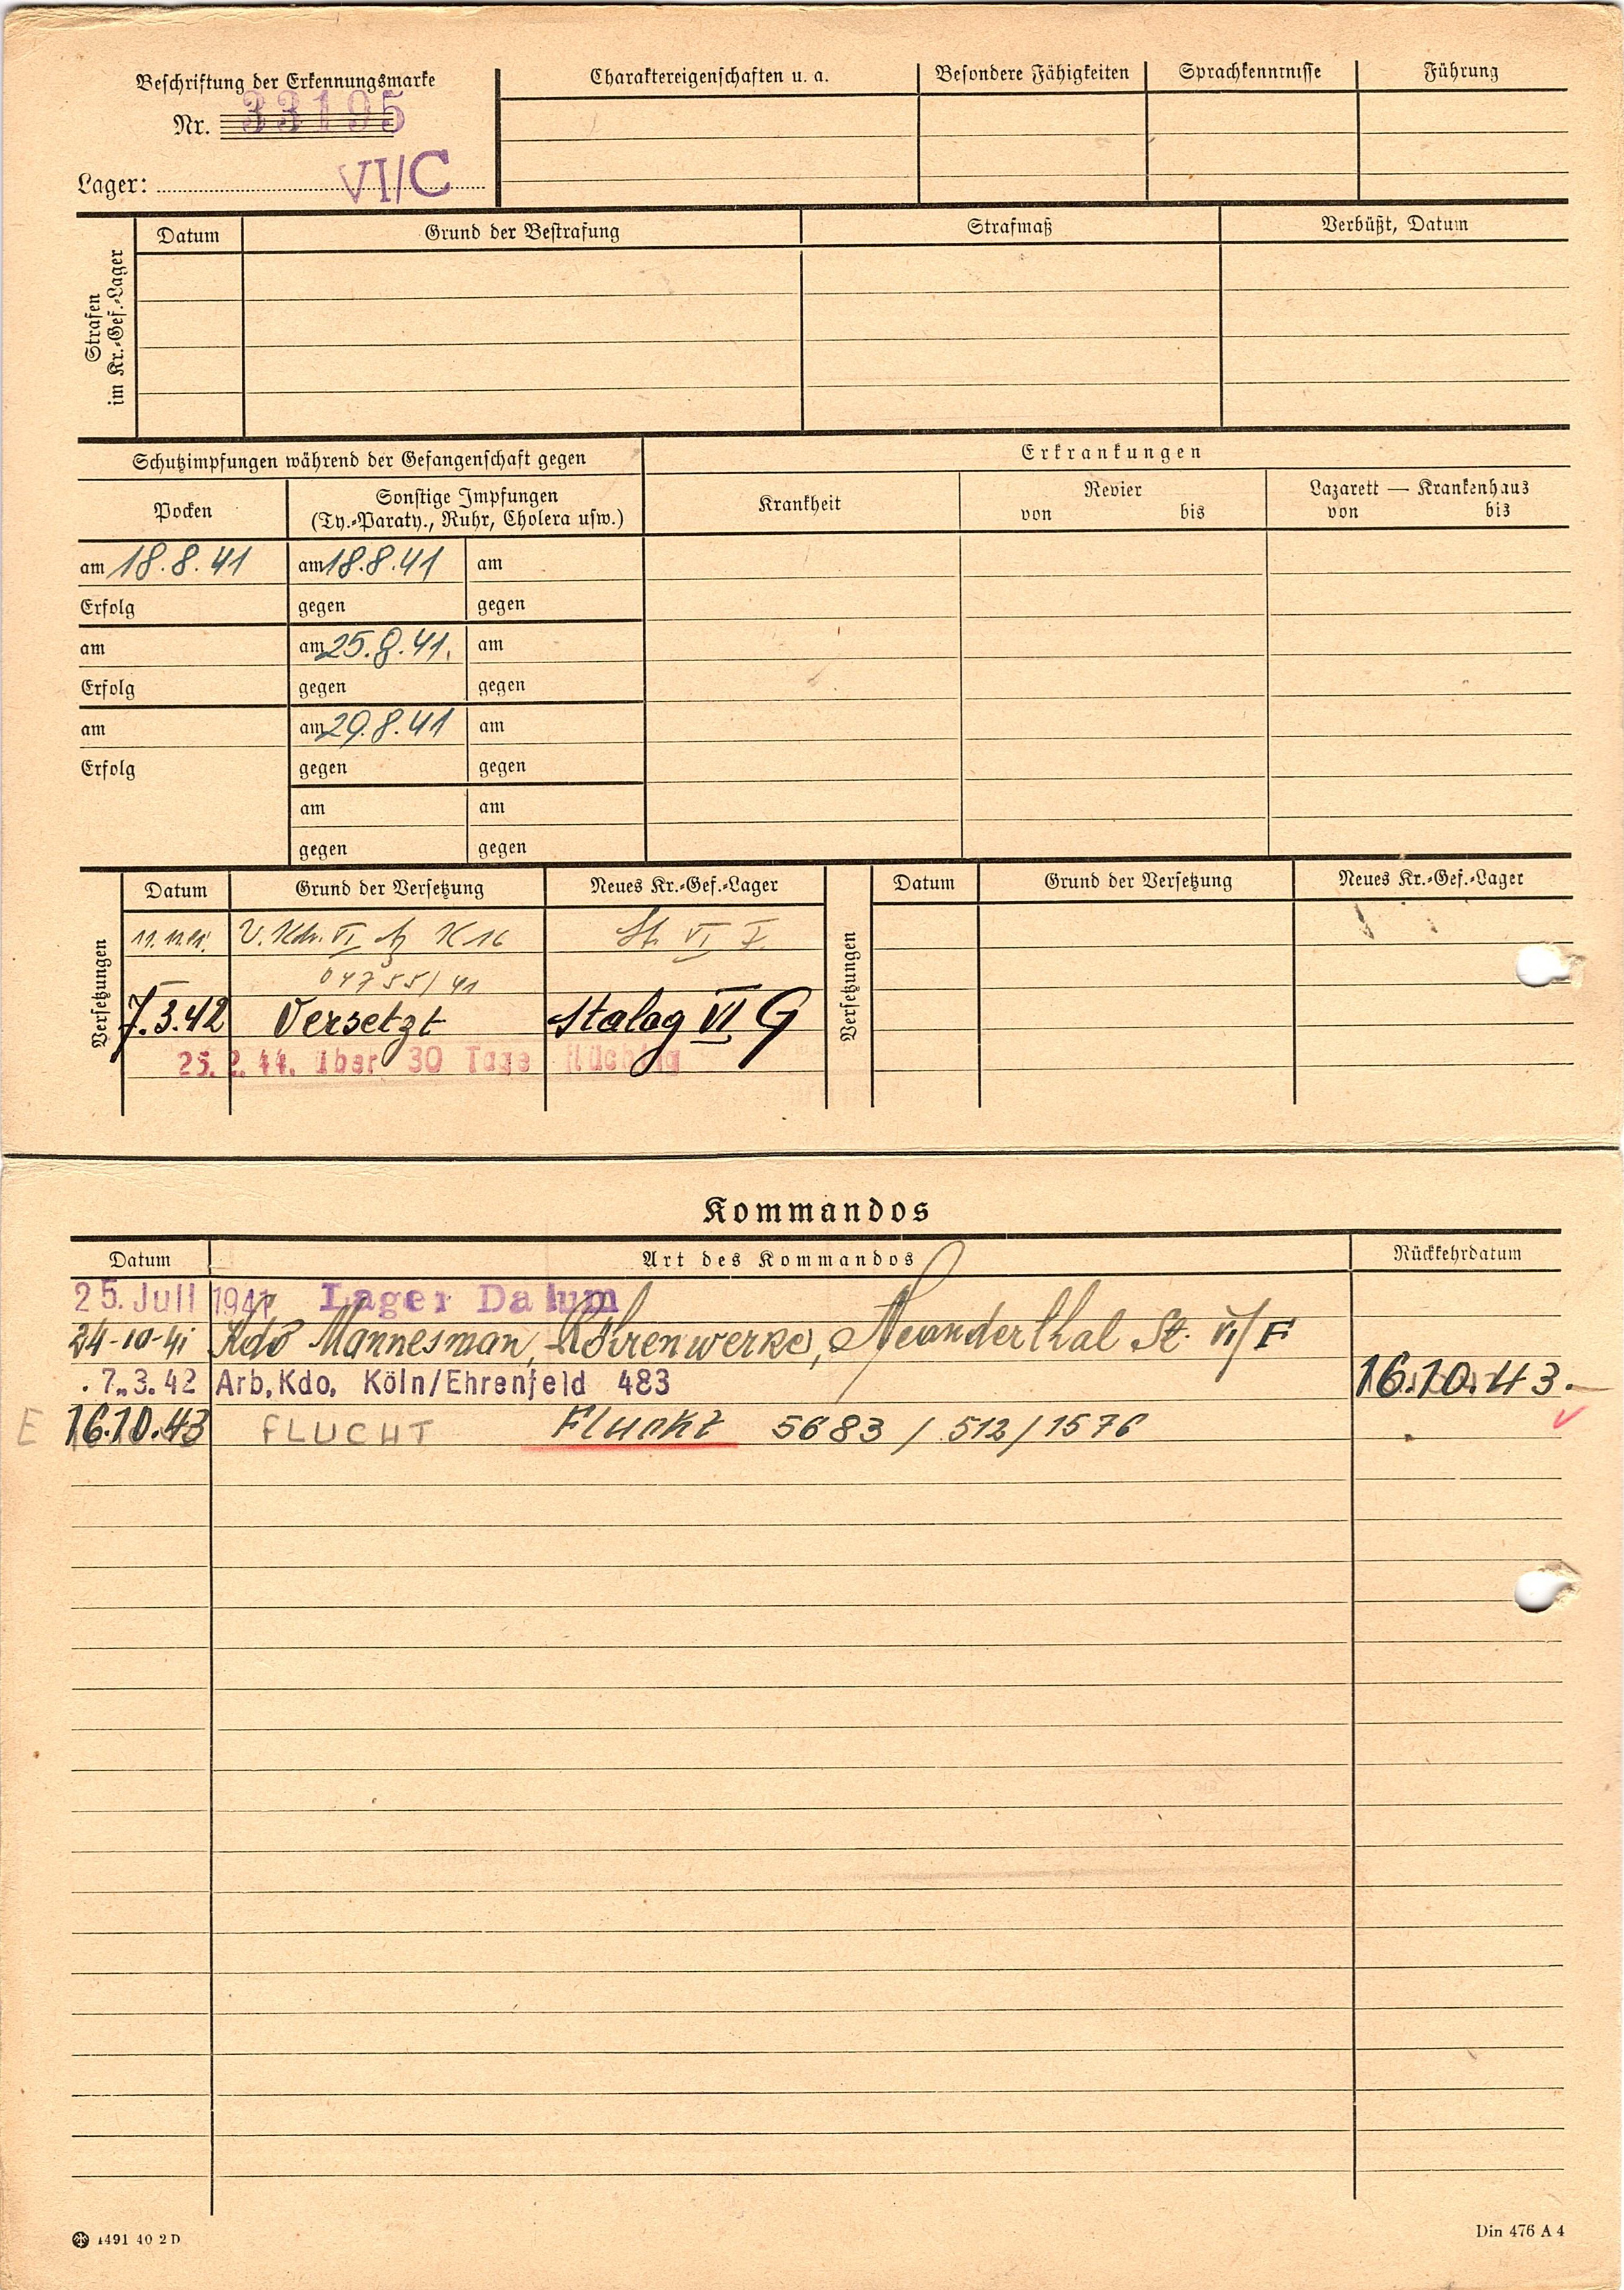 Beschriftung der Erkennungsmarke
Nr. 33195
Lager: VI/C
Charaktereigenschaften u. a.
Besondere Fähigkeiten
Sprachkenntnisse
Führung
Strafen
im Kr.-Gef.-Lager
Datum
Grund der Bestrafung
Strafmaß
Verbüßt, Datum
Schutzimpfungen während der Gefangenschaft gegen
Erkrankungen
Pocken
Sonstige Impfungen
(Ty.-Paraty., Ruhr, Cholera usw.)
Krankheit
Revier
von bis
Lazarett — Krankenhaus
von bis
am 18.8.41 am 18.8.41 am
Erfolg gegen gegen
am am 25.8.41. am
Erfolg gegen gegen
am am 29.8.41 am
Erfolg gegen gegen
am am
gegen gegen
Versetzungen
Datum Grund der Versetzung Neues Kr.-Gef.-Lager
VI K 16 St. VI F.
04755/41
7.3.42 Versetzt Stalag VI G
25.2.44. über 30 Tage flüchtig
Versetzungen
Datum Grund der Versetzung Neues Kr.-Gef.-Lager
Kommandos
Datum Art des Kommandos Rückkehrdatum
25. Juli 1941 Lager Datum
24-10-41 Kdo Mannesman, Röhrenwerke, Neanderthal St. VI/F
. 7. 3. 42 Arb. Kdo. Köln/Ehrenfeld 483 16.10.43.
E 16.10.43 FLUCHT Flucht 5683 / 512 / 1576
1491 40 2 D
Din 476 A 4